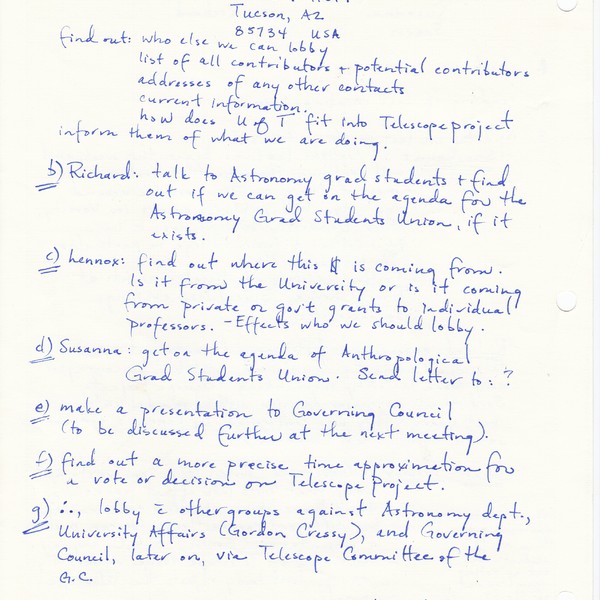 Tucson, AZ
85734 USA
find out: who else we can lobby
list of all contributors + potential contributors
addresses of any other contacts
current information.
how does U of T fit into Telescope project
inform them of what we are doing.
b) Richard: talk to Astronomy grad students + find
out if we can get on the agenda for the
Astronomy Grad Students Union, if it
exists.
c) Lennox: find out where this $ is coming from.
Is it from the University or is it coming
from private or gov't grants to individual
professors. - Effects who we should lobby.
d) Susanna: get on the agenda of Anthropological
Grad Students Union. Send letter to: ?
e) make a presentation to Governing Council
(to be discussed further at the next meeting).
f) find out a more precise time approximation for
a vote or decision on Telescope Project.
g) ∴, lobby c̄ other groups against Astronomy dept.,
University Affairs (Gordon Cressy), and Governing
Council, later on, via Telescope Committee of the
G.C.